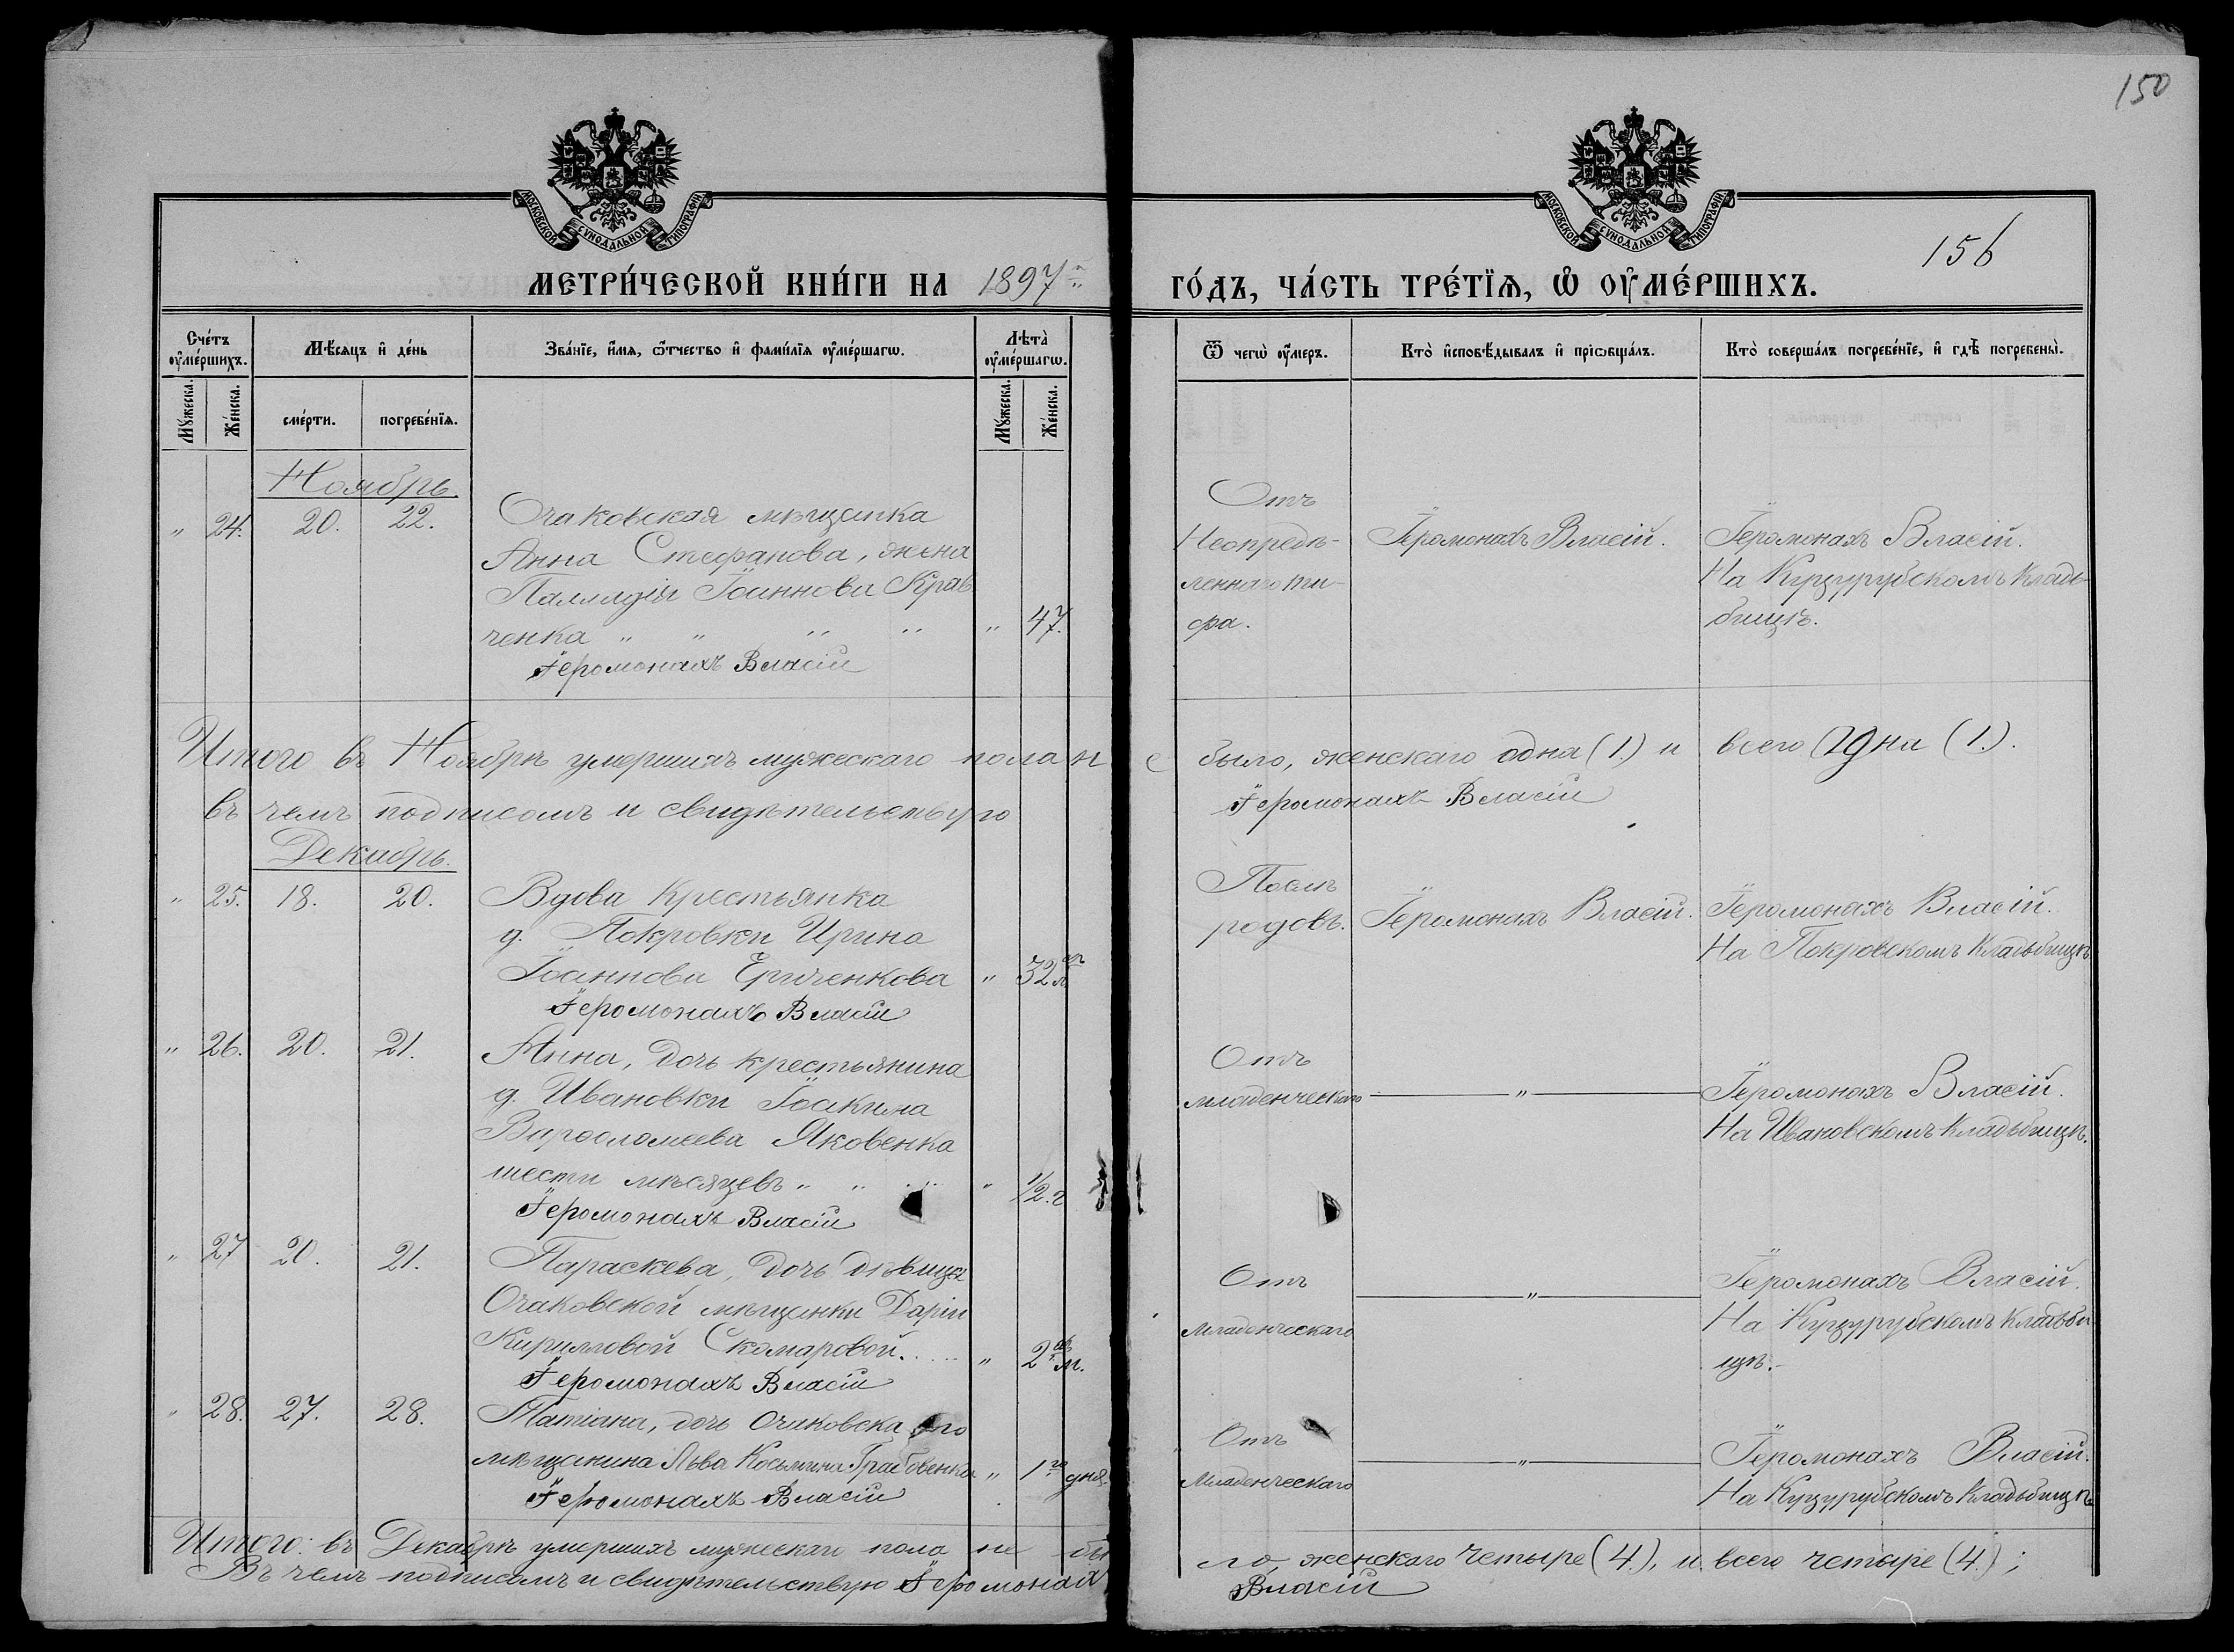 150
МОСКОВСКОЙ СѴНОДАЛЬНОЙ ТИПОГРАФІИ
МОСКОВСКОЙ СѴНОДАЛЬНОЙ ТИПОГРАФІИ
156
МЕТРИ́ЧЕСКОЙ КНИ́ГИ НА 1897 ГО́ДЪ, ЧА́СТЬ ТРЕ́ТЇѦ, Ѡ҆ ОУ҆МЕ́РШИХЪ.
Сче́тъ оу҆ме́ршихъ.
Мꙋ́жеска.
Же́нска.
Мѣ́сяцъ и҆ де́нь
сме́рти.
погребе́нїѧ.
Зва́нїе, и҆́мѧ, ѻ҆́тчество и҆ фами́лїѧ оу҆ме́ршагѡ.
Лѣта̀ оу҆ме́ршагѡ.
Мꙋ́жеска.
Же́нска.
Ѿ чегѡ̀ оу҆́меръ.
Кто̀ и҆сповѣ́дывалъ и҆ прїѡбща́лъ.
Кто̀ соверша́лъ погребе́нїе, и҆ гдѣ̀ погребены̀.
Ноябрь.
" 24. 20. 22.
Очаковская мѣщанка
Анна Стефанова, жена
Палладія Іоаннова Крав
ченка " " " " " 47.
Іеромонахъ Власій
Отъ
Неопредѣ-
леннаго ти-
фа.
Іеромонахъ Власій.
Іеромонахъ Власій.
На Куцурубскомъ Кладь-
бищѣ.
Итого въ Ноябрѣ умершихъ мужескаго пола не было, женскаго одна (1.) и всего одна (1.).
въ чемъ подписомъ и свидѣтельствую
Іеромонахъ Власій
Декабрь.
" 25. 18. 20.
Вдова Крестьянка
д. Покровки Ирина
Іоаннова Ериченкова " 32 л
Іеромонахъ Власій
Послѣ
родовъ.
Іеромонахъ Власій.
Іеромонахъ Власій.
На Покровскомъ Кладьбищѣ
" 26. 20. 21.
Анна, дочь крестьянина
д. Ивановки Іоакима
Варфоломеева Яковенка
шести мѣсяцевъ " " " " 1/2. г
Іеромонахъ Власій
Отъ
младенческаго
"
Іеромонахъ Власій.
На Ивановскомъ Кладьбищѣ.
" 27 20. 21.
Параскева, дочь дѣвицы
Очаковской мѣщанки Даріи
Кирилловой Скамаровой..... " 2 м.
Іеромонахъ Власій
Отъ
Младенческаго
"
Іеромонахъ Власій.
На Куцурубскомъ Кладьби
щѣ.-
" 28. 27. 28.
Татіана, дочь Очаковскаго
мѣщанина Льва Косьмина Грабовенка " 1го дня.
Іеромонахъ Власій
Отъ
Младенческаго
"
Іеромонахъ Власій.
На Куцурубскомъ Кладьбищѣ
Итого: въ Декабрѣ умершихъ мужескаго пола не было, женскаго четыре (4.), и всего четыре (4.);
Въ чемъ подписомъ и свидѣтельствую Іеромонахъ Власій